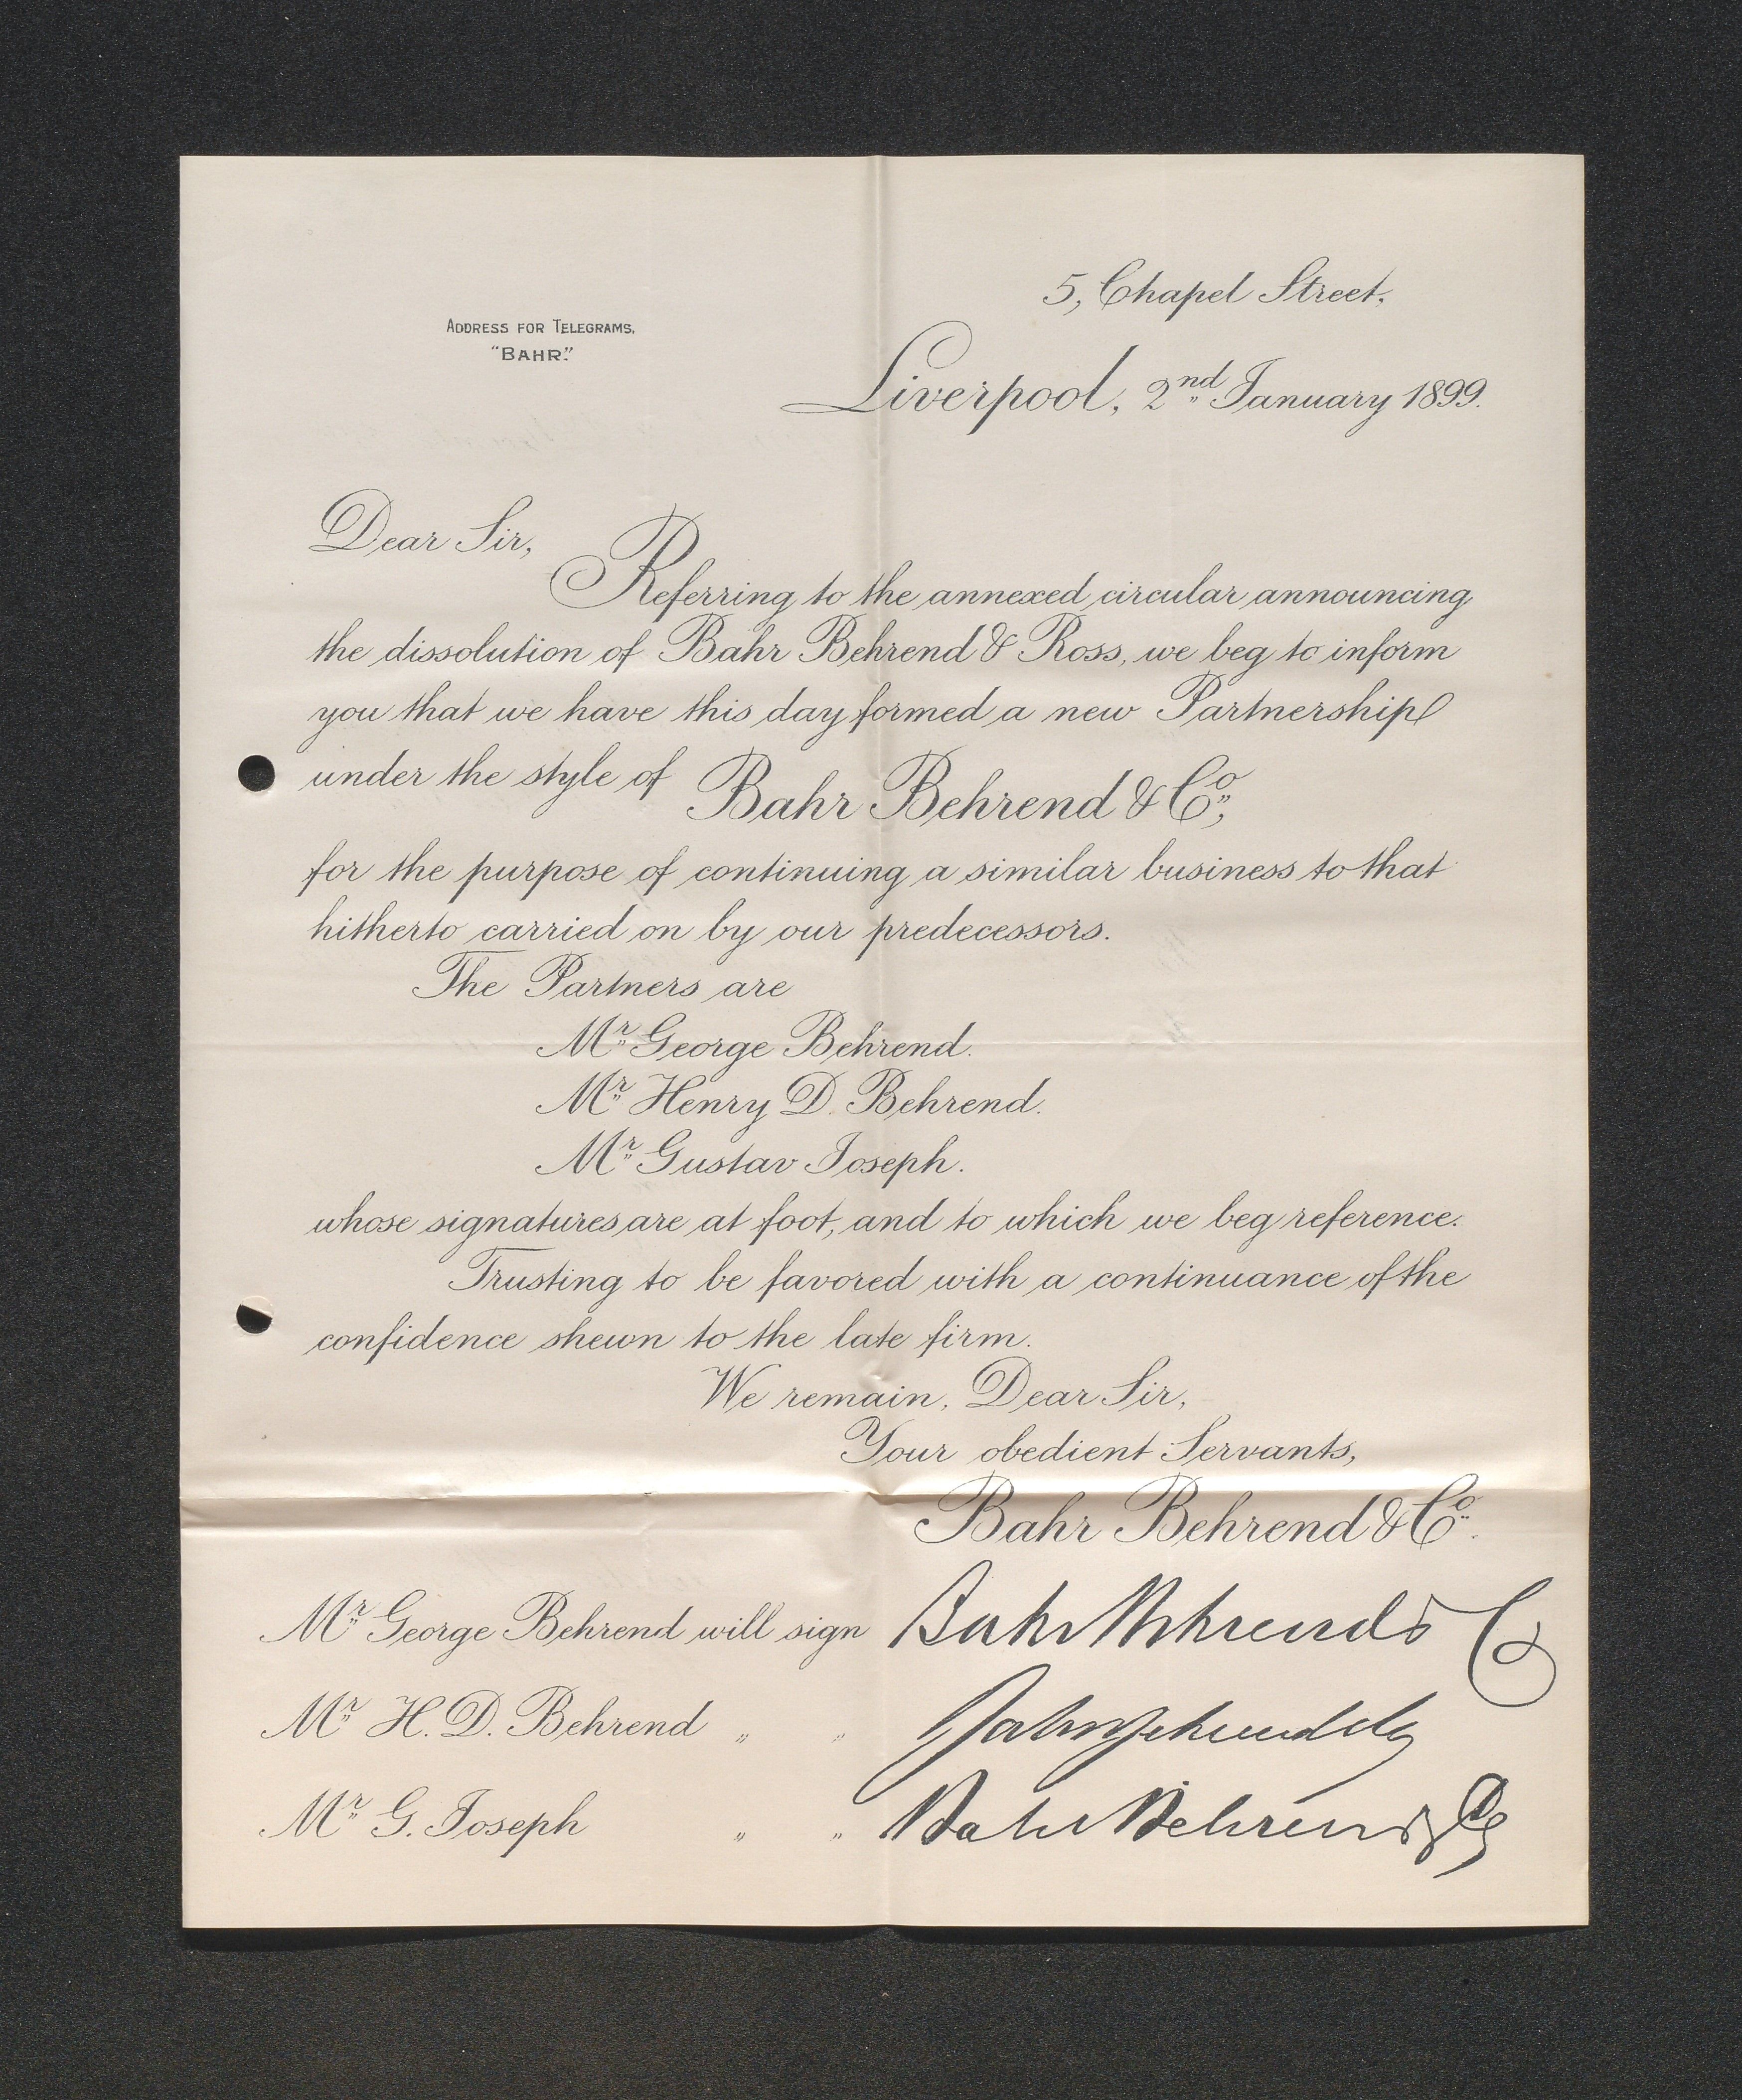 5, Chapel Street,
ADDRESS FOR TELEGRAMS,
"BAHR."
Liverpool, 2nd January 1899.
Dear Sir,
Referring to the annexed circular announcing
the dissolution of Bahr Behrend & Ross, we beg to inform
you that we have this day formed a new Partnership
under the style of Bahr Behrend & Co,
for the purpose of continuing a similar business to that
hitherto carried on by our predecessors.
The Partners are
Mr George Behrend.
Mr Henry D. Behrend.
Mr Gustav Joseph.
whose signatures are at foot, and to which we beg reference.
Trusting to be favored with a continuance of the
confidence shewn to the late firm.
We remain, Dear Sir,
Your obedient Servants,
Bahr Behrend & Co.
Mr George Behrend will sign Bahr Behrend & Co
Mr H. D. Behrend " " Bahr Behrend & Co
Mr G. Joseph " " Bahr Behrend & Co